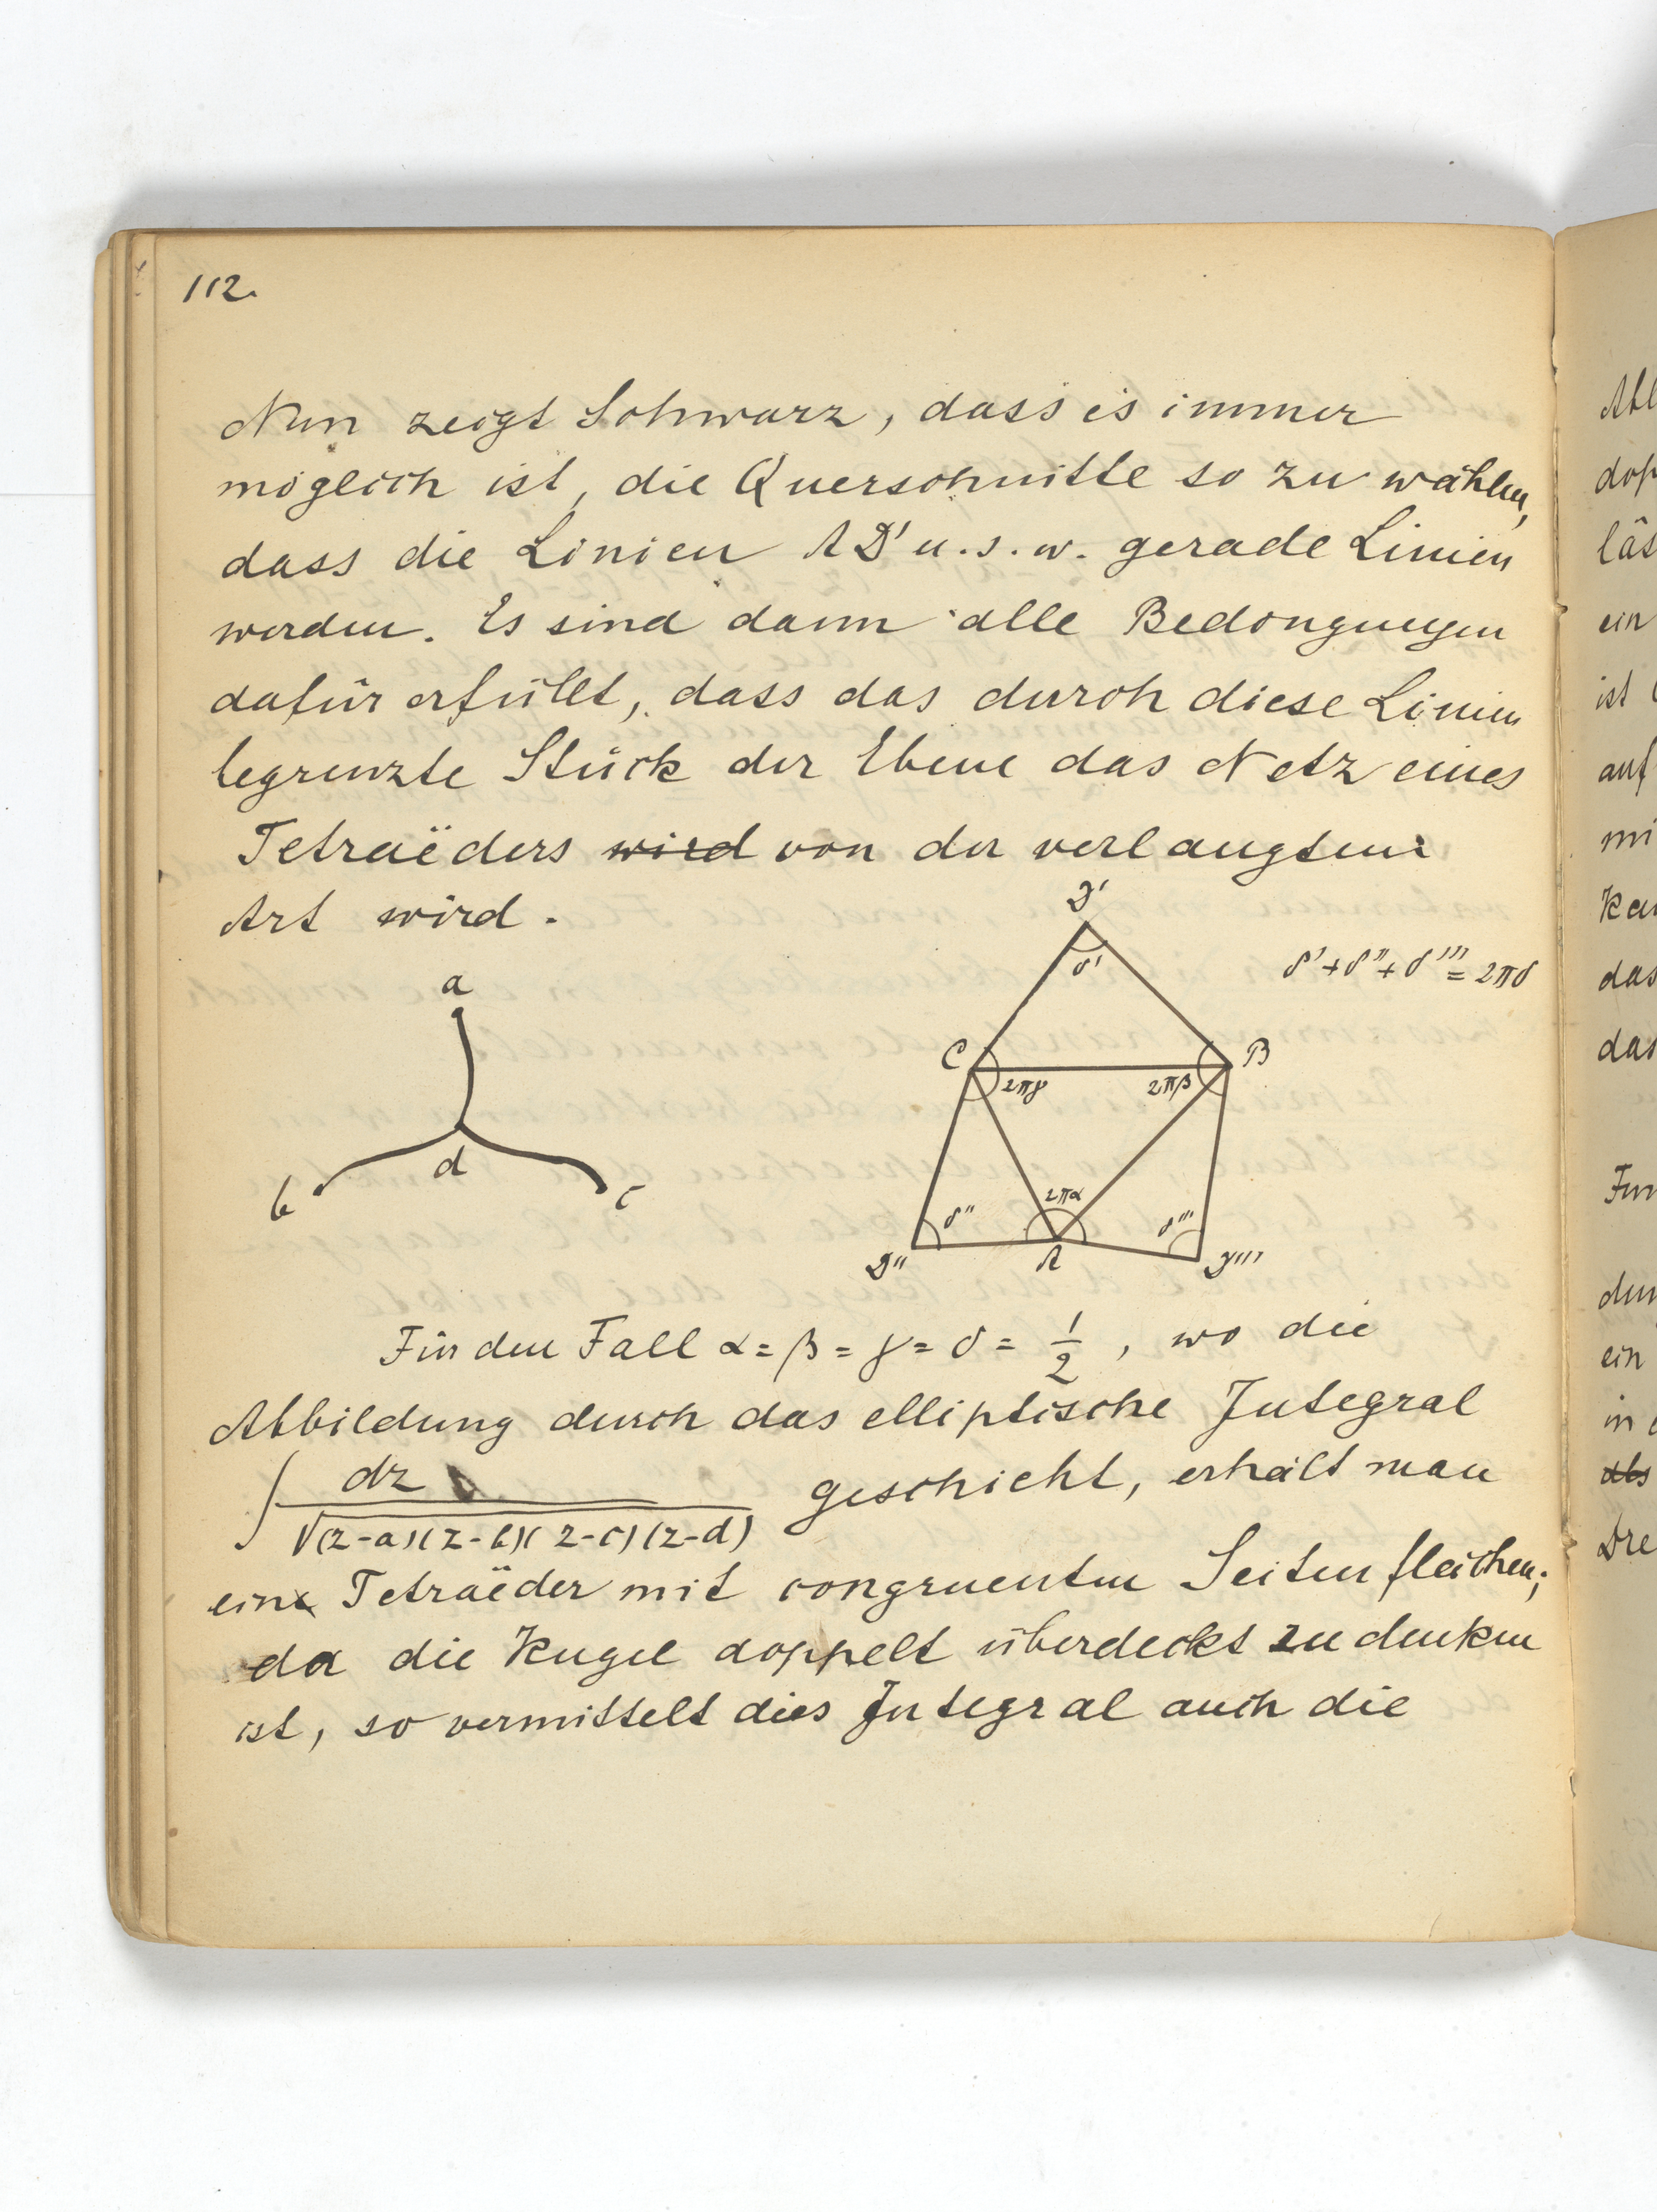 112.
Nun zeigt Schwarz, dass es immer
möglich ist, die Querschnitte so zu wählen,
dass die Linien AD' u.s.w. gerade Linien
werden. Es sind dann alle Bedingungen
dafür erfüllt, dass das durch diese Linien
begrenzte Stück der Ebene das Netz eines
Tetraëders wird von der verlangten
Art wird.
D'
δ'
δ' + δ'' + δ''' = 2πδ
a
C
B
2πγ
2πβ
d
b
c
2πα
δ''
δ'''
D''
A
D'''
Für den Fall α = β = γ = δ = 1/2, wo die
Abbildung durch das elliptische Integral
∫ dz / √(z-a)(z-b)(z-c)(z-d) geschieht, erhält man
ein Tetraëder mit congruenten Seitenflächen;
da die Kugel doppelt überdeckt zu denken
ist, so vermittelt dies Integral auch die
Abl
dop
läs
ein
ist
auf
mi
das
das
ein
in
als
Dre